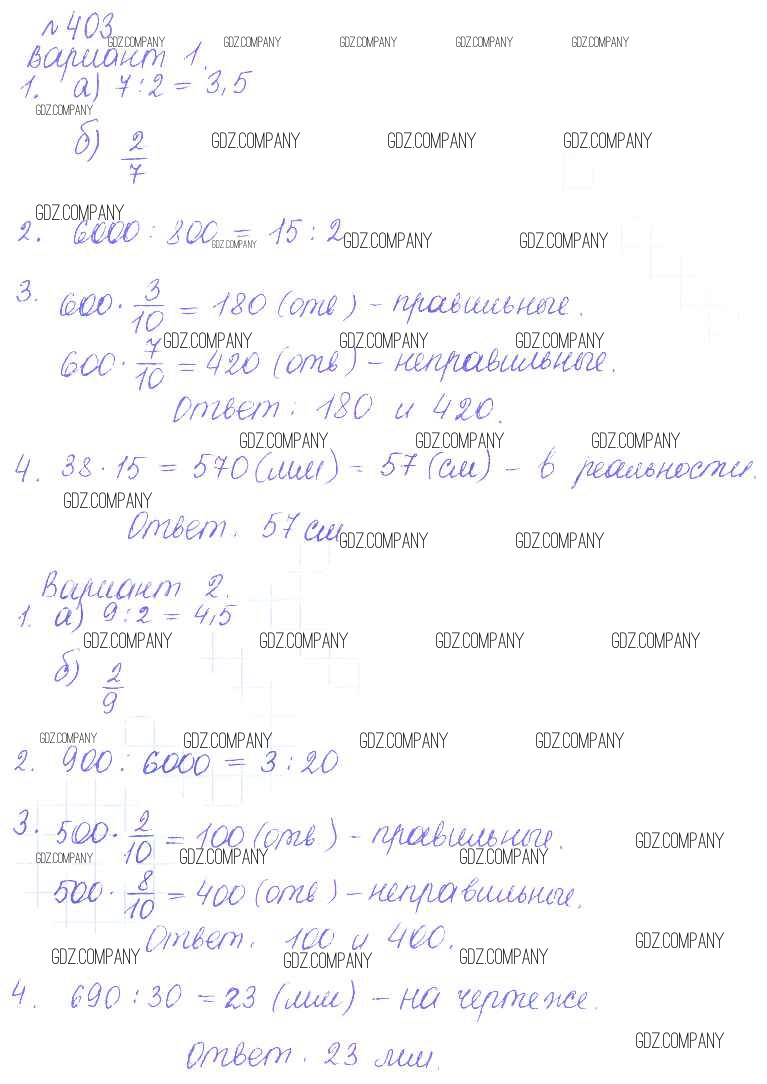 №403
GDZ.COMPANY GDZ.COMPANY GDZ.COMPANY GDZ.COMPANY GDZ.COMPANY
Вариант 1.
1. а) 7 : 2 = 3,5
GDZ.COMPANY
б) 2/7
GDZ.COMPANY GDZ.COMPANY GDZ.COMPANY
GDZ.COMPANY
2. 6000 : 800 = 15 : 2
GDZ.COMPANY GDZ.COMPANY GDZ.COMPANY
3. 600 · 3/10 = 180 (отв) - правильные.
GDZ.COMPANY GDZ.COMPANY GDZ.COMPANY
600 · 7/10 = 420 (отв) - неправильные.
Ответ: 180 и 420.
GDZ.COMPANY GDZ.COMPANY GDZ.COMPANY
4. 38 · 15 = 570 (мм) = 57 (см) - в реальности.
GDZ.COMPANY
Ответ. 57 см
GDZ.COMPANY GDZ.COMPANY
Вариант 2.
1. а) 9 : 2 = 4,5
GDZ.COMPANY GDZ.COMPANY GDZ.COMPANY GDZ.COMPANY
б) 2/9
GDZ.COMPANY GDZ.COMPANY GDZ.COMPANY GDZ.COMPANY
2. 900 : 6000 = 3 : 20
3. 500 · 2/10 = 100 (отв) - правильные.
GDZ.COMPANY
GDZ.COMPANY GDZ.COMPANY GDZ.COMPANY
500 · 8/10 = 400 (отв) - неправильные.
Ответ. 100 и 400.
GDZ.COMPANY
GDZ.COMPANY GDZ.COMPANY GDZ.COMPANY
4. 690 : 30 = 23 (мм) - на чертеже.
GDZ.COMPANY
Ответ. 23 мм.